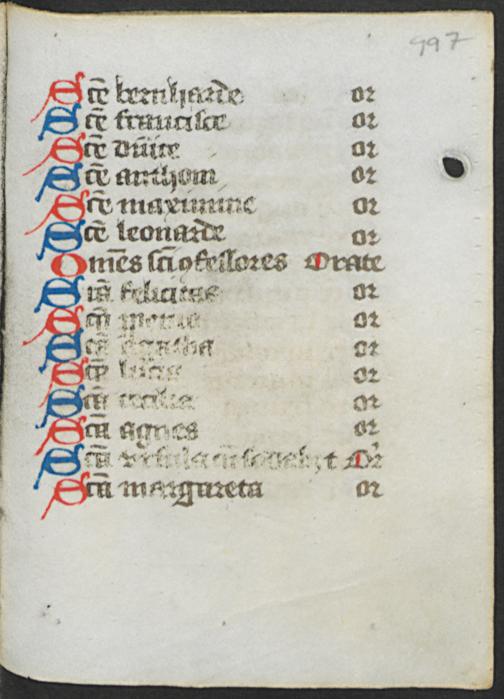 997
Sce bernharde or
Sce francisce or
Sce or
Sce anthoni or
Sce maximine or
Sce leonarde or
Omēs sci ꝯfessores Orate
Sca felicitas or
Sca or
Sca agatha or
Sca lucia or
Sca cecilia or
Sca agnes or
Sca vrsula cū sodalib; t Or
Sca margareta or